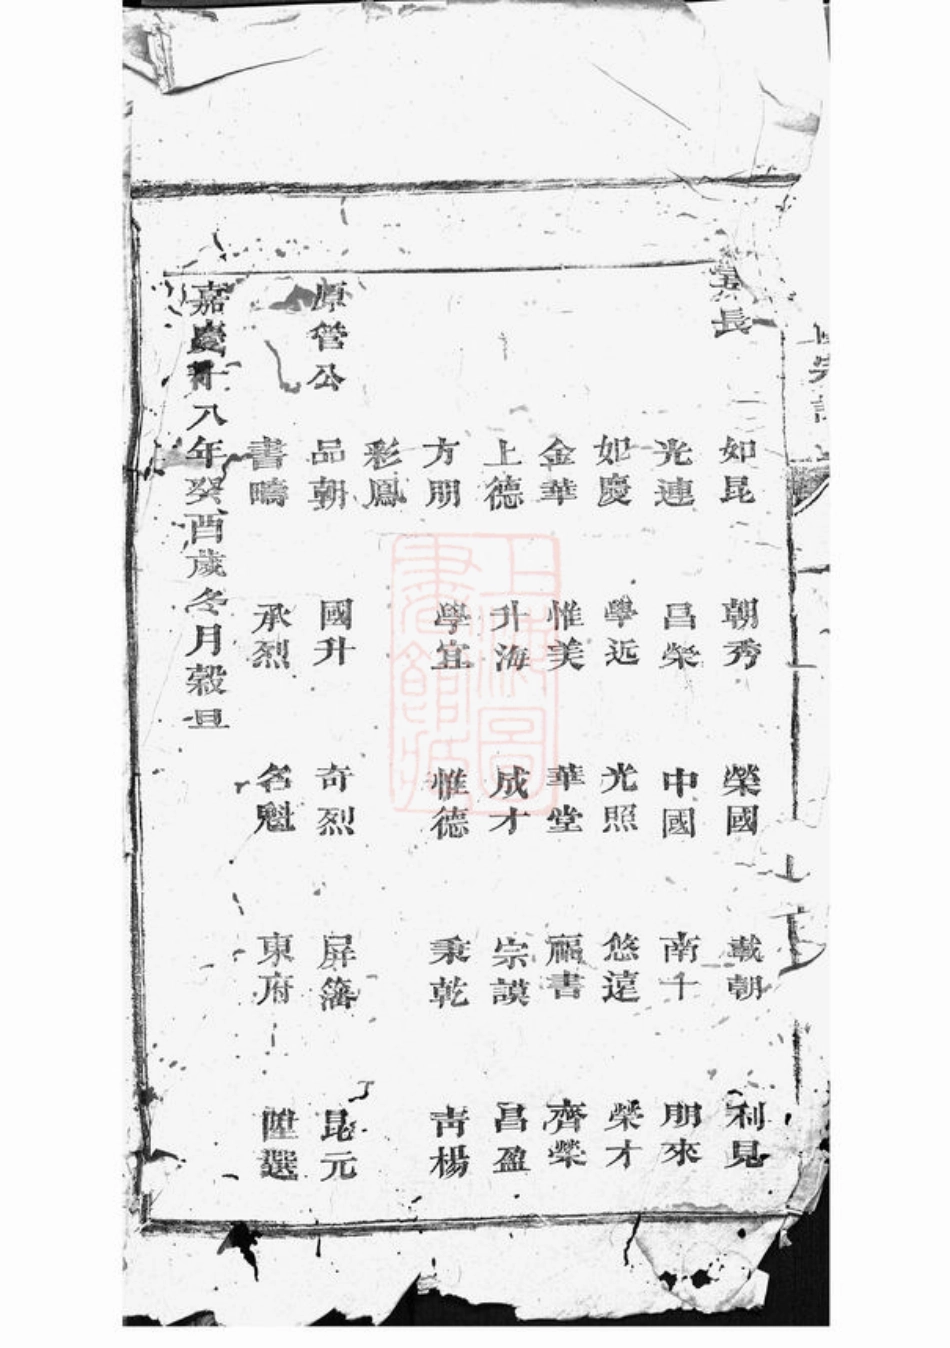 長
如昆 朝秀 榮國 載朝 利見
光連 昌榮 中國 南千 朋來
如慶 學远 光照 悠遠 榮才
金華 惟美 華堂 福書 齊榮
上德 升海 成才 宗謨 昌盈
方朋 學宜 惟德 秉乾 青楊
彩鳳
原管公 品朝 國升 奇烈 屏藩 昆元
書疇 承烈 名魁 東府 陞選
嘉慶十八年癸酉歲冬月穀旦
上海圖書館藏